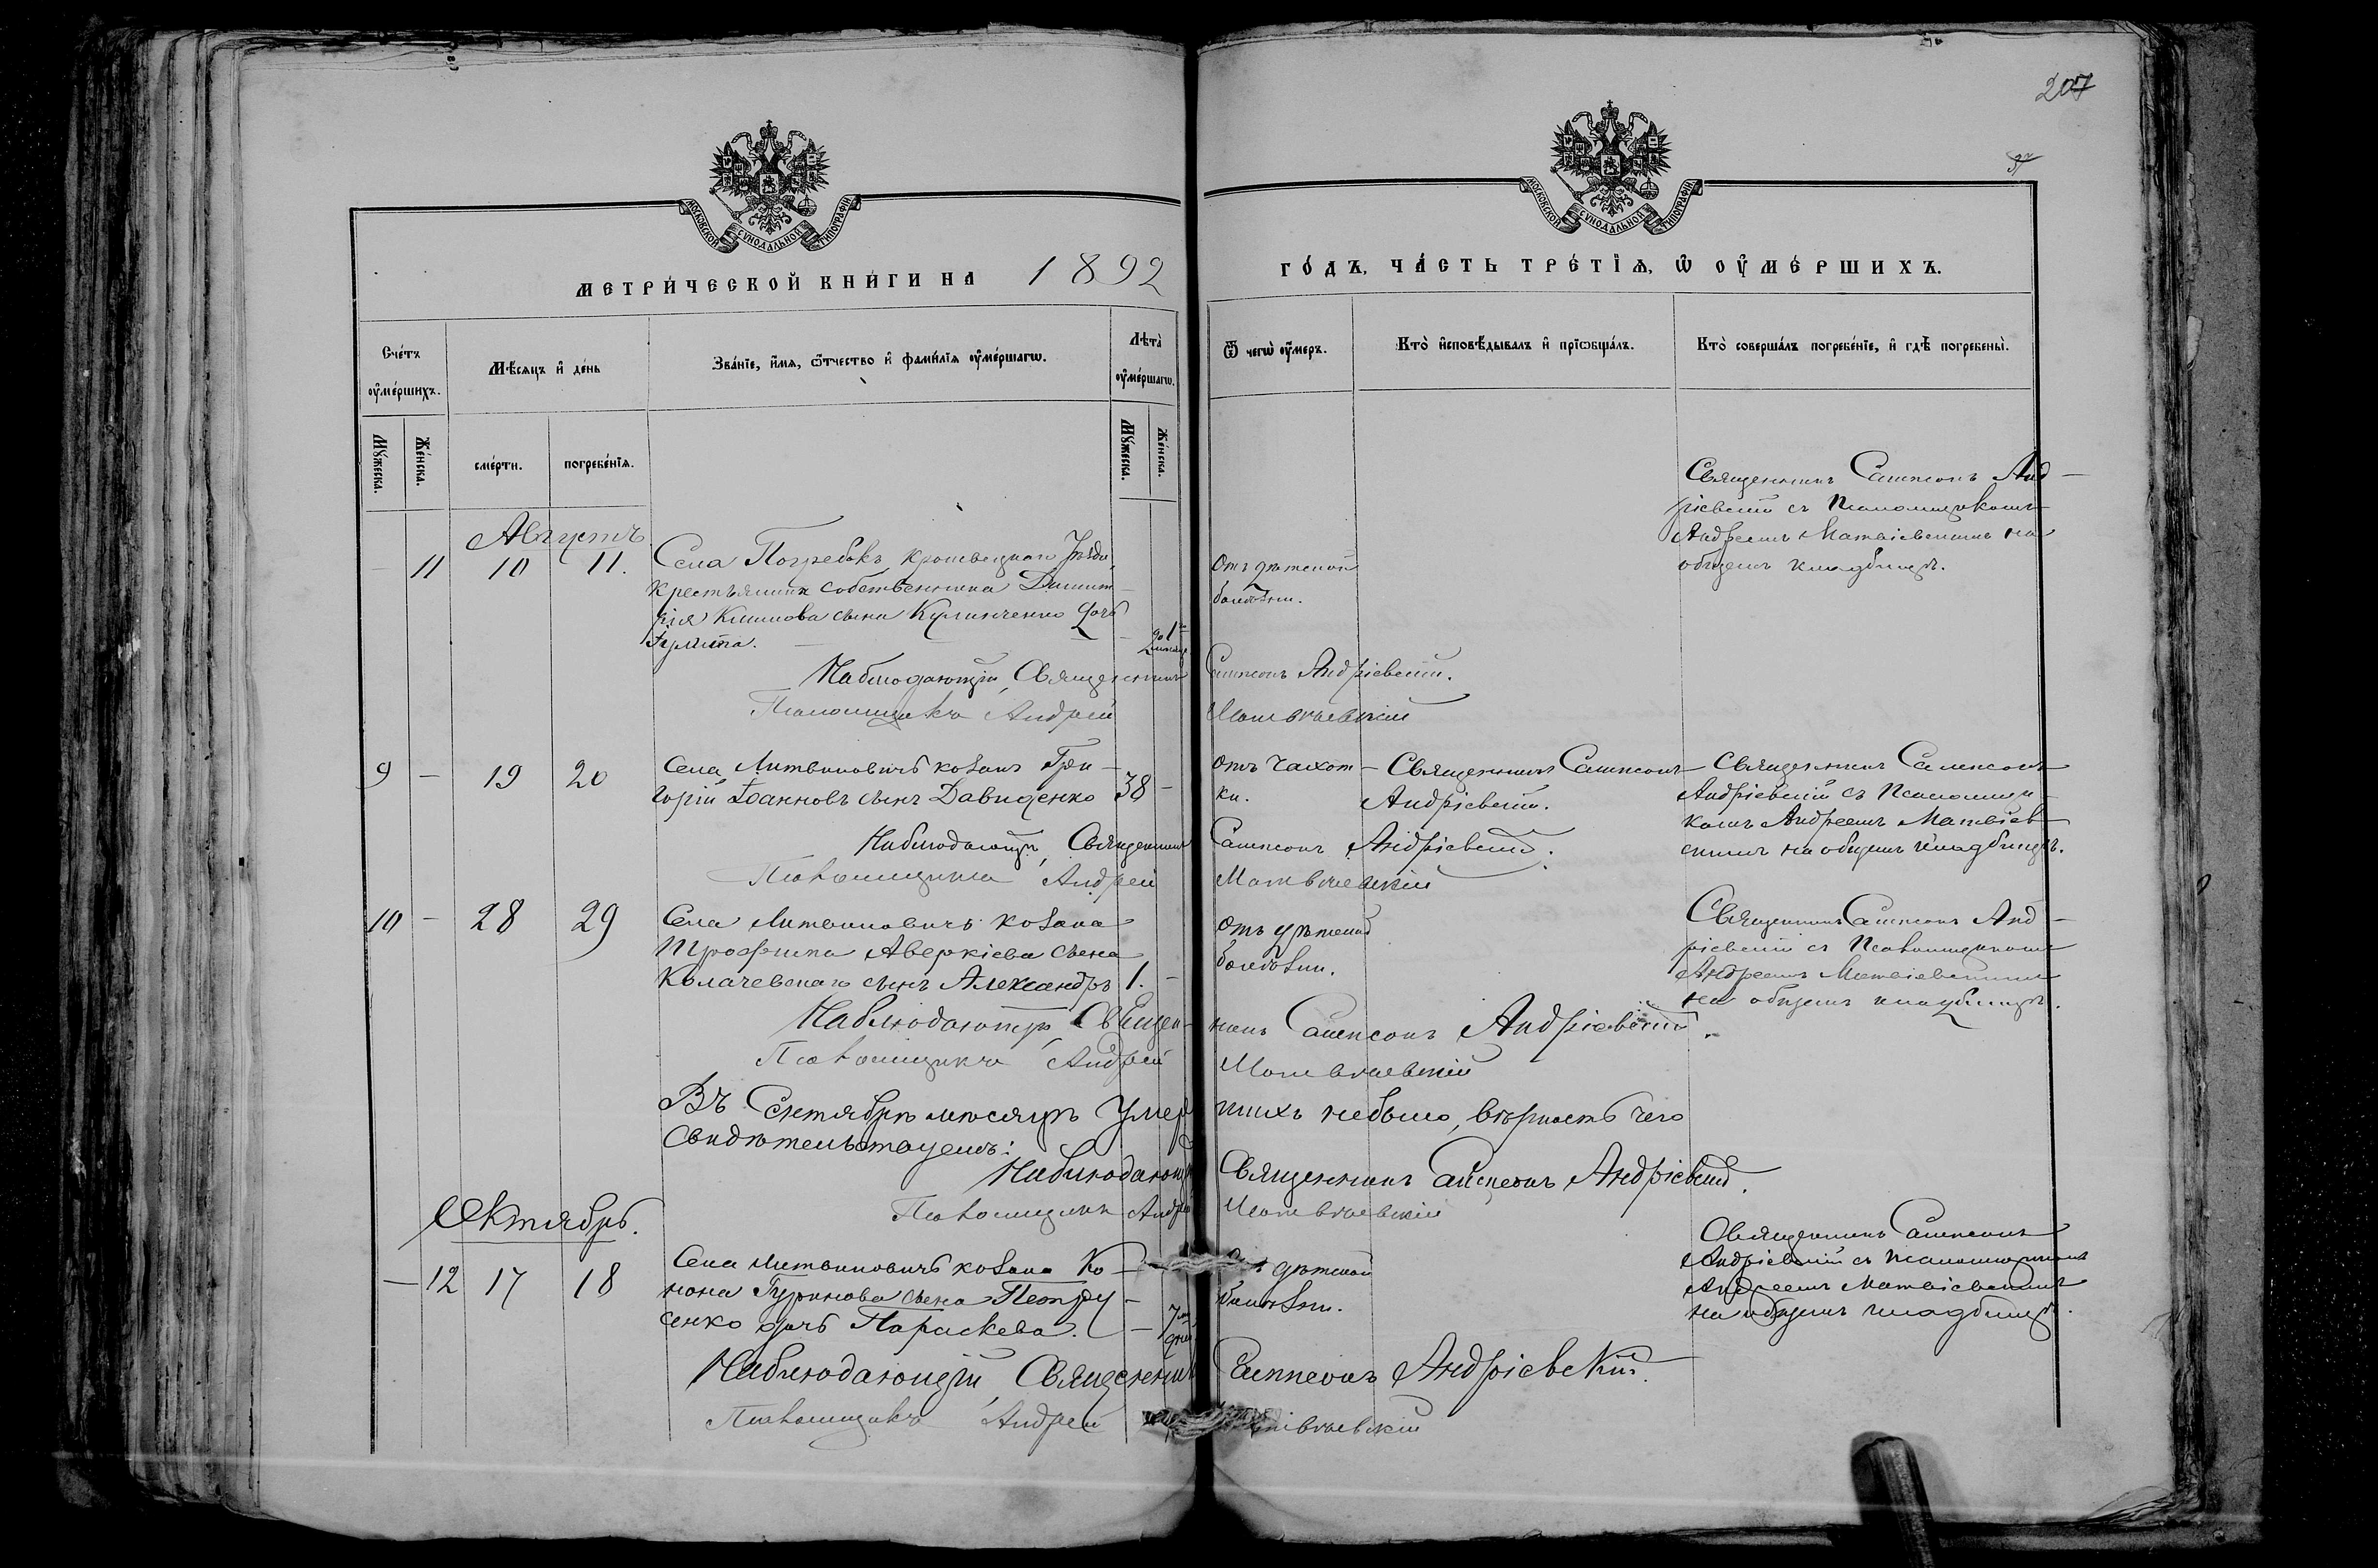 207
МОСКОВСКОЙ СѴНОДАЛЬНОЙ ТИПОГРАФІИ
МОСКОВСКОЙ СѴНОДАЛЬНОЙ ТИПОГРАФІИ
МЕТРИ́ЧЕСКОЙ КНИ́ГИ НА 1892
ГО́ДЪ, ЧА́СТЬ ТРЕ́ТІѦ, Ѡ҆ ОУ҆МЕ́РШИХЪ.
Сче́тъ оу҆ме́ршихъ.
Мѣ́сѧцъ и҆ де́нь
Зва́нїе, и҆́мѧ, ѻ҆́тчество и҆ фами́лїѧ оу҆ме́ршагѡ.
Лѣ́та̀ оу҆ме́ршагѡ.
Ѿ чегѡ̀ оу҆́меръ.
Кто̀ и҆сповѣ́дывалъ и҆ прїѡбща́лъ.
Кто̀ соверша́лъ погребе́нїе, и҆ гдѣ̀ погребены̀.
Мꙋ́жеска.
Же́нска.
сме́рти.
погребе́нїѧ.
Мꙋ́жеска.
Же́нска.
Августъ
— 11 10 11.
Села Погребокъ Кролевецкаго Уѣзда,
крестьянина собственника Димит-
рія Климова сына Куличенко дочь
Іулита.
Отъ дѣтской
болѣзни.
Священникъ Сампсонъ Анд-
ріевскій съ Псаломщикомъ
Андреемъ Матвіевскимъ на
общемъ кладбищѣ.
Наблюдающій Священникъ Сампсонъ Андріевскій.
Псаломщикъ Андрей Матвѣевскій
9 — 19 20
Села Литвиновичъ козакъ Гри-
горій Іоанновъ сынъ Давиденко 38 —
отъ чахот-
ки.
Священникъ Сампсонъ
Андріевскій.
Священникъ Сампсонъ
Андріевскій съ Псаломщи-
комъ Андреемъ Матвіев-
скимъ на общемъ кладбищѣ.
Наблюдающій Священникъ Сампсонъ Андріевскій.
Псаломщикъ Андрей Матвѣевскій
10 — 28 29
Села Литвиновичъ козака
Трофима Аверкіева сына
Колачевскаго сынъ Александръ 1. —
отъ дѣтской
болѣзни.
Священникъ Сампсонъ Анд-
ріевскій съ Псаломщикомъ
Андреемъ Матвіевскимъ
на общемъ кладбищѣ.
Наблюдающій Священникъ Сампсонъ Андріевскій.
Псаломщикъ Андрей Матвѣевскій
Въ Сентябрѣ мѣсяцѣ Умершихъ небыло, вѣрность чего
Свидѣтельствуемъ:
Наблюдающій Священникъ Сампсонъ Андріевскій.
Псаломщикъ Андрей Матвѣевскій
Октябрь.
— 12 17 18
Села Литвиновичъ козака Ко-
нона Гуринова сына Петру-
сенко дочь Параскева.
дѣтской
болѣзни.
Священникъ Сампсонъ
Андріевскій съ Псаломщикомъ
Андреемъ Матвіевскимъ
на общемъ кладбищѣ.
Наблюдающій Священникъ Сампсонъ Андріевскій.
Псаломщикъ Андрей Матвѣевскій